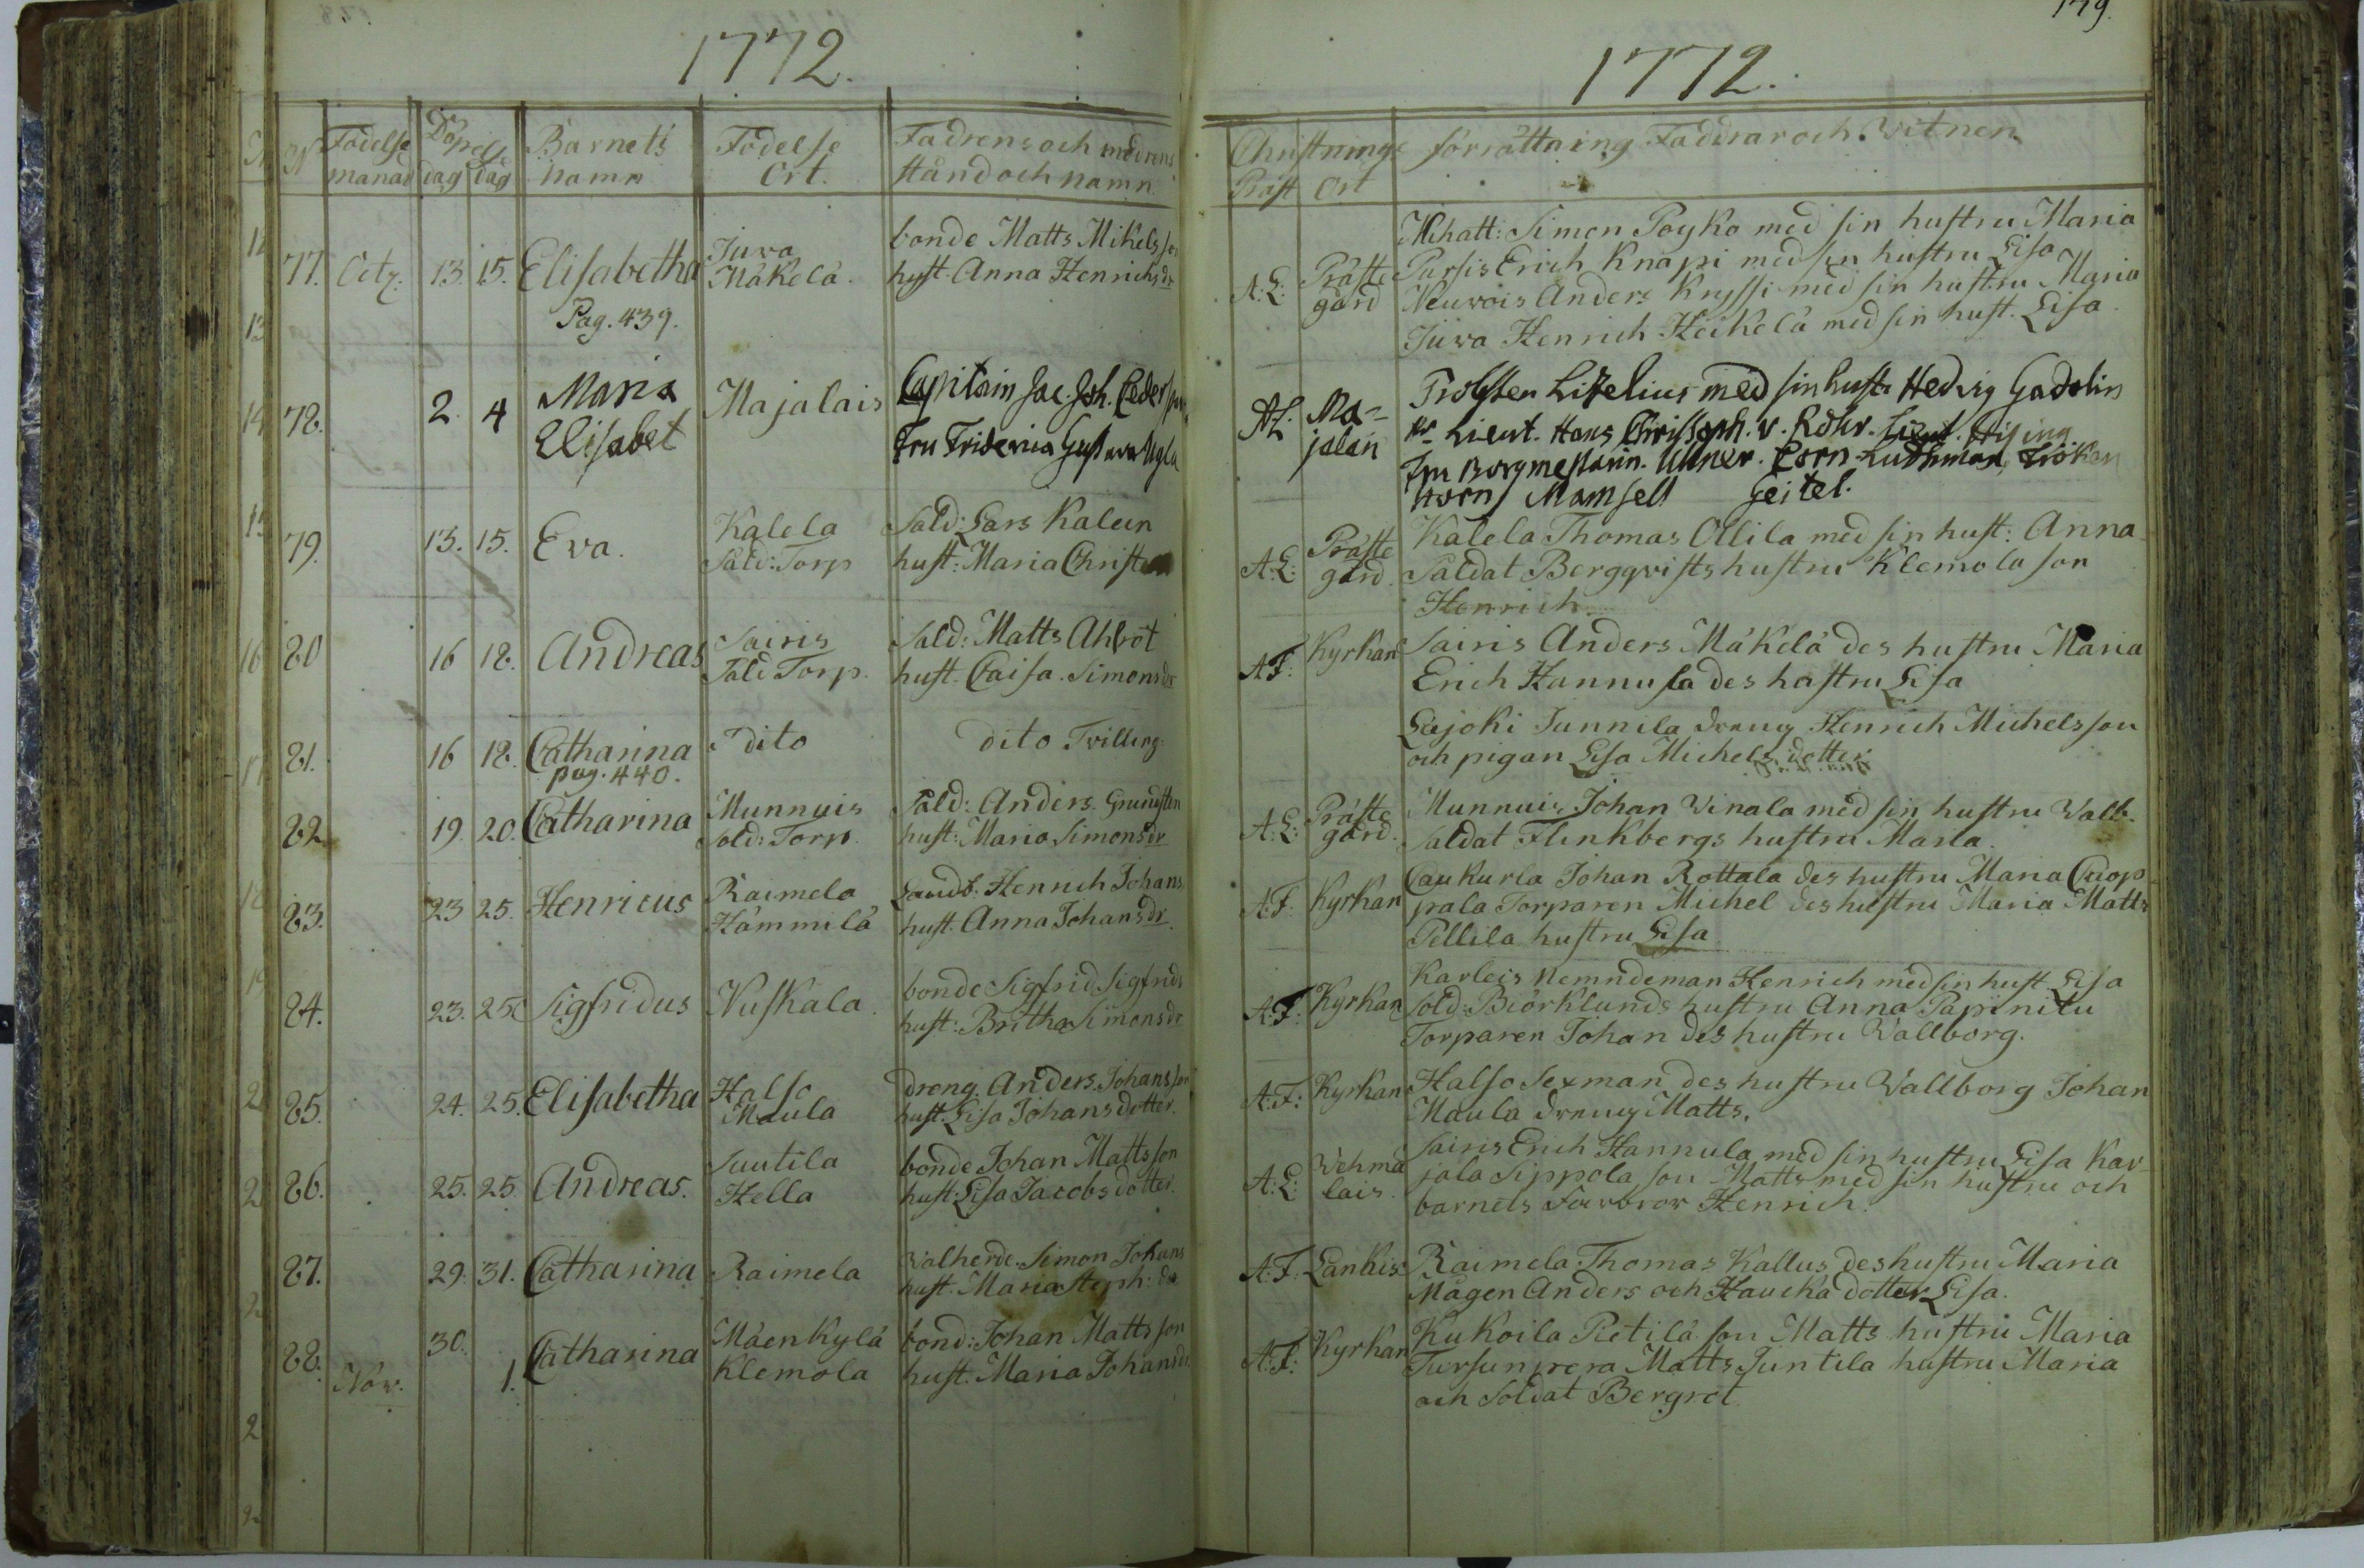 1772.
N Födelse månad Döpelse dag dag Barnets namn Födelse Ort. Fadrens och modrens stånd och namn
77. Octz. 13. 15. Elisabetha Juva Mäkelä. bonde Matts Mikelsson
hust. Anna Henrichsdr
Pag. 439.
78. 2. 4 Maria Elisabet Majalais Capitain Jac. Joh. Ceder
Fru Friderica Gustava Ugla
79. 13. 15. Eva. Kalela Sald: Torp Sald: Lars Kaleen
hust: Maria Christ
80 16 18. Andreas Sairis Sald Torp. Sald: Matts Ahlrot
hust. Caisa Simonsdr
81. 16 18. Catharina dito dito Tvilling
pag. 440.
82 19. 20. Catharina Munnuis Sold: Torp. Sald: Anders Grundsten
hust: Maria Simonsdr
83. 23 25. Henricus Raimela Hämmilä Landb. Henrich Johans
hust. Anna Johansdr.
84. 23. 25 Sigfridus Nuskala. bonde Sigfrid Sigfrids
hust: Britha Simonsdr
85. 24. 25. Elisabetha Halso Maula dreng. Anders Johansson
hust. Lisa Johansdotter.
86. 25. 25 Andreas. Suutila Hella bonde Johan Mattsson
hust: Lisa Jacobsdotter.
87. 29. 31. Catharina Raimela Valherde Simon Johans
hust. Maria Steph: dr
88. Nov. 30. 1. Catharina Mäenkylä Klemola bond: Johan Mattsson
hust. Maria Johansdr
179.
1772.
Christnings förrättning Faddrar och Vitnen
Präst Ort
Mihatt: Simon Poyko med sin hustru Maria
A: L: Präste gård Pursis Erich Knapi med sin hustru Lisa
Neuvois Anders Kryssi med sin hustru Maria
Juva Henrich Heikelä med sin hust. Lisa.
AL. Ma= jalan Probsten Lizelius med sin hust. Hedvig Gadolin
Lieut. Hans Christoph. v. Röhr. Lieut. Grising
Fru Borgmestarin. Ullner. Corn. Ludhman, Fröken
Horn Mamsell Geitel.
A: L: Präste gård. Kalela Thomas Ollila med sin hust: Anna
Saldat Bergqvists hustru Klemola son
Henrich
A F: Kyrkan Sairis Anders Mäkelä des hustru Maria
Erich Hannula des hustru Lisa
Lajoki Junnila dreng Henrich Michelsson
och pigan Lisa Michelsdotter
A: L: Präste gård. Munnuis Johan Vinala med sin hustru Valb.
Saldat Flinkbergs hustru Maria.
A: F. Kyrkan Caukurla Johan Rottala des hustru Maria Cuop
pala Torparen Michel des hustru Maria Matts
Pellila hustru Lisa
A: F: Kyrkan Karleis Nemndeman Henrich med sin hust Lisa
Sold: Biörklunds hustru Anna Papinitu
Torparen Johan des hustru Vallborg.
A: F: Kyrkan Halso Sexman des hustru Vallborg Johan
Maula dreng Matts.
A: L: Vehmalais. Sairis Erich Hannula med sin hustru Lisa Kar
jala Sippola son Matts med sin hustru och
barnets Farbror Henrich.
A: F: Lankis Raimela Thomas Kallus des hustru Maria
Mågen Anders och Haucka dotter Lisa.
A: F: Kyrkan Kukoila Pietilä son Matts hustru Maria
Tursunpera Matts Juntila hustru Maria
och Soldat Bergrot